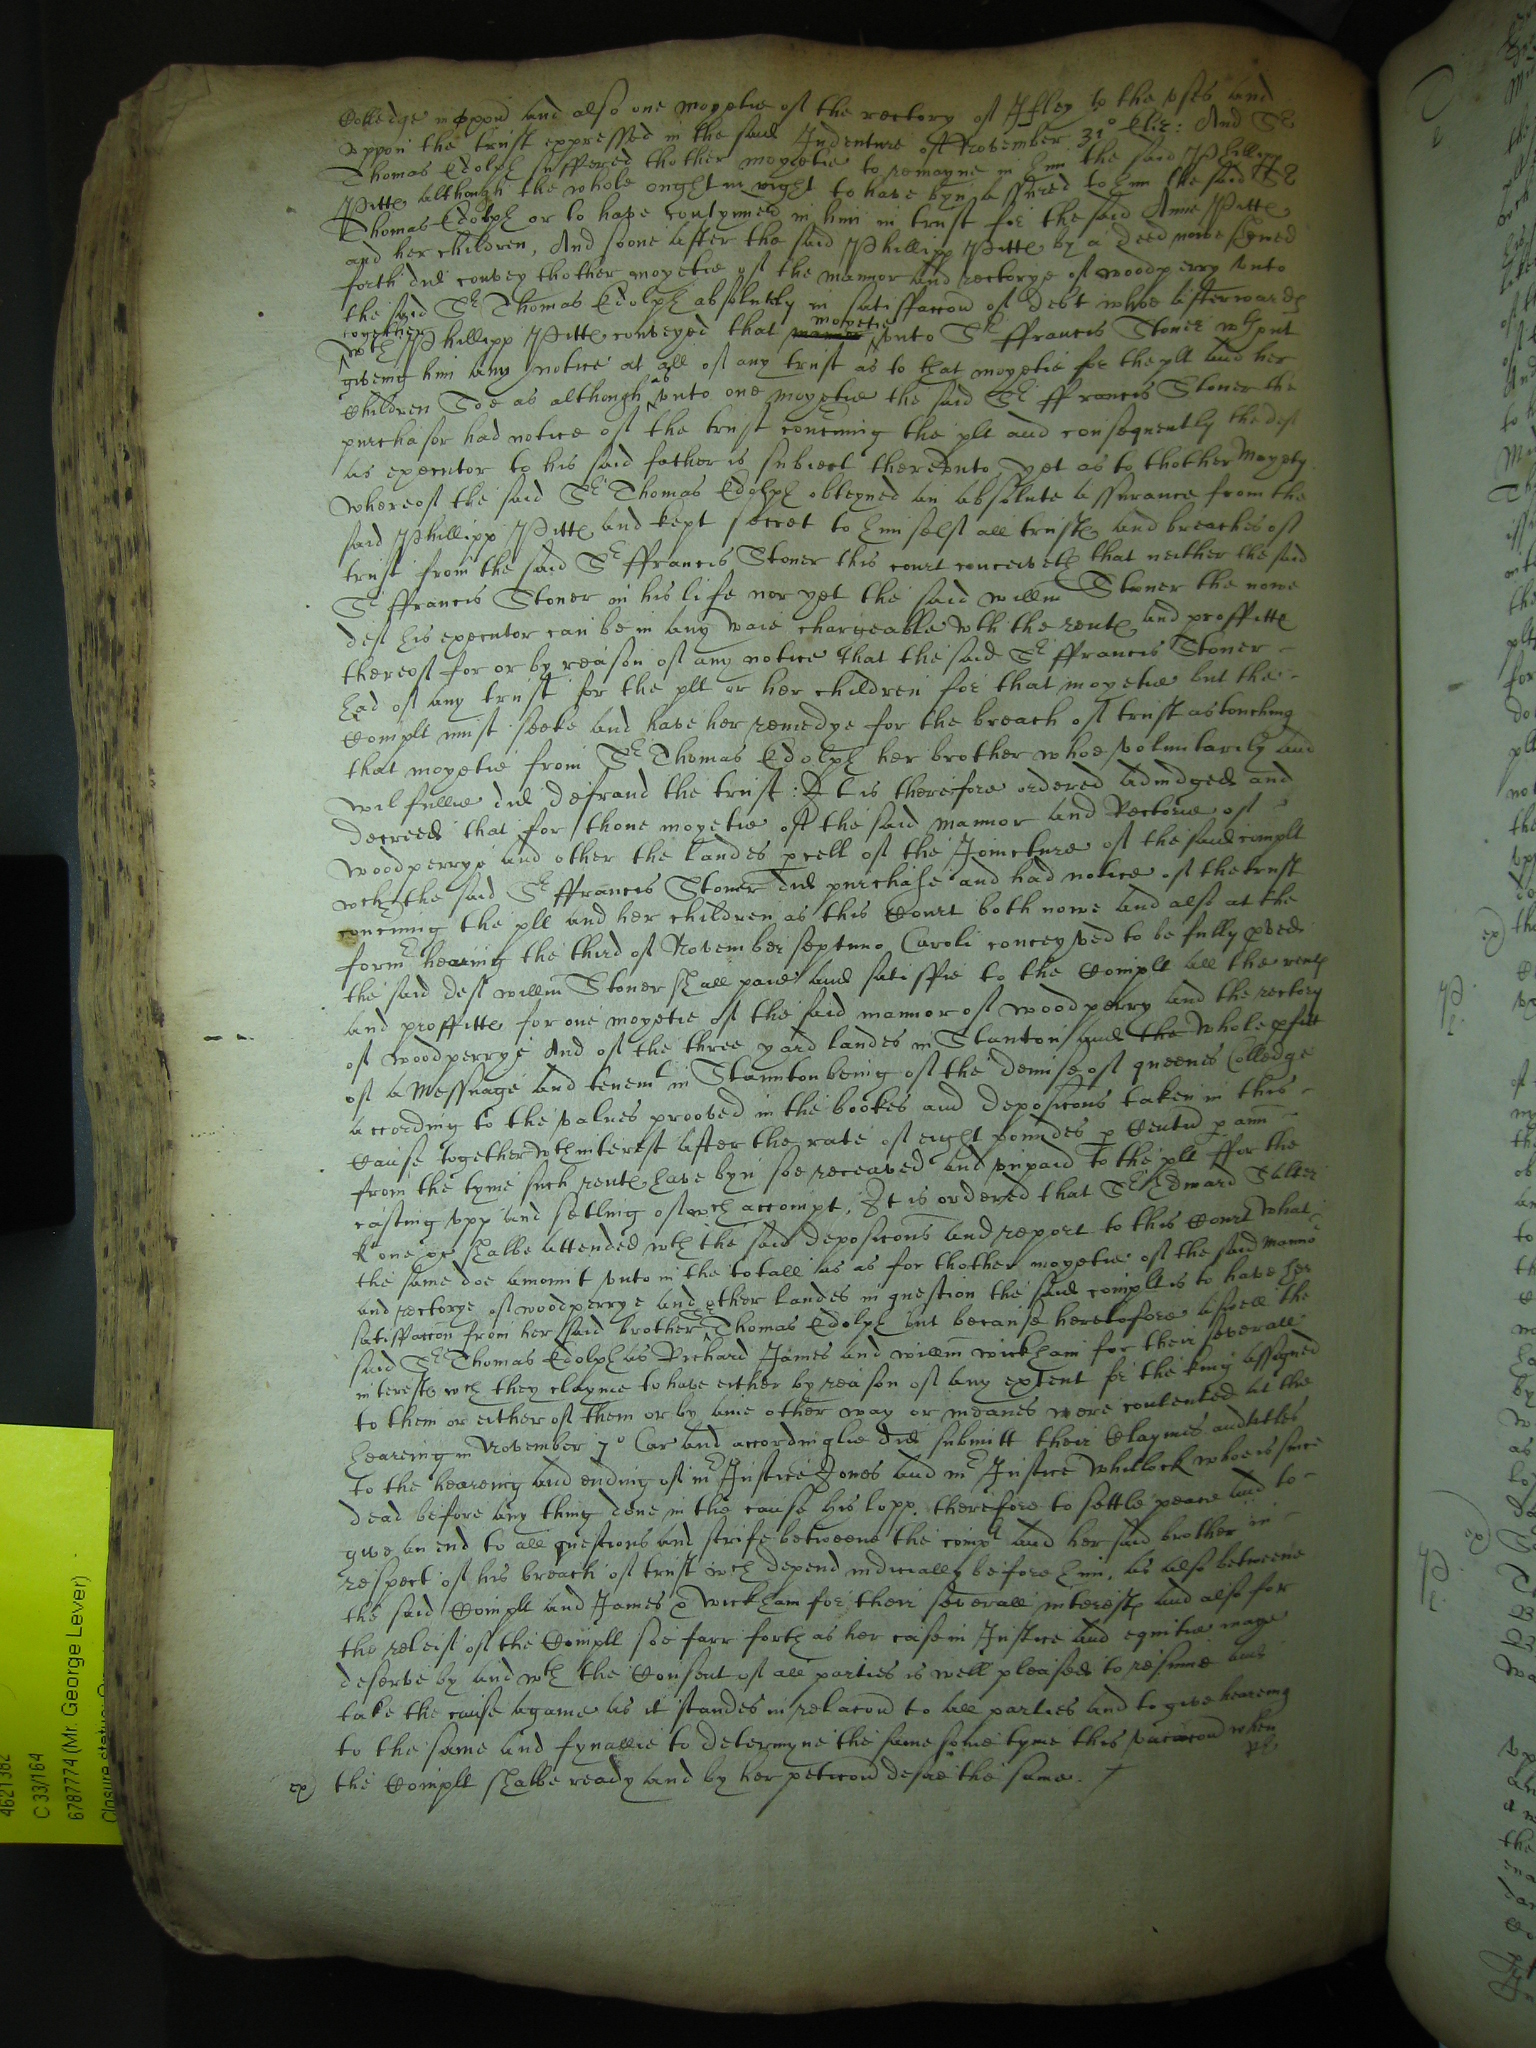 Colledge in Oxon and also one moyetie of the rectory of Ifley to the uses and
uppon the trust expressed in the said Indenture of November 31° Eliz: And Sr
Thomas Edolph suffered thother moyetie to remayne in him the said Phillipp
Pitte although the whole ought in right to have byn assured to him the said Sr
Thomas Edolph or to have contynued in him in trust for the said Anne Pitte
and her children, And soone after the said Phillipp Pitte by a deed nowe shewed
forth did convey thother moyetie of the mannor and rectorye of woodperry unto
the said Sr Thomas Edolph absolutely in satisfaccon of debt whoe afterwardes
together
wth Phillipp Pitte conveyed that moyetie unto Sr ffrancis Stoner wthout
giveing him any notice at all of any trust as to that moyetie for the plt and her
children Soe as although as unto one moyetie the said Sr ffrancis Stoner the
purchasor had notice of the trust concerning the plt and consequently the deft
as executor to his said father is subiect thereunto yet as to thother Moyety
whereof the said Sr Thomas Edolph obteyned an absolute assurance from the
said Phillipp Pitte and kept secret to himself all trustes and breaches of
trust from the said Sr ffrancis Stoner this court conceiveth that neither the said
Sr ffrancis Stoner in his life nor yet the said willm Stoner the nowe
deft his executor can be in any waie chargeable wth the rentes and proffitte
thereof for or by reason of any notice that the said Sr ffrancis Stoner
had of any trust for the plt or her children for that moyetie but the
Complt must seeke and have her remedye for the breach of trust as touching
that moyetie from Sr Thomas Edolph her brother whoe voluntarily and
wilfullie did defraud the trust: It is therefore ordered adiudged and
decreed that for thone moyetie of the said mannor and Rectorie of
woodperrye and other the landes pcell of the Joincture of the said complt
wch the said Sr ffrancis Stoner did purchase and had notice of the trust
concerning the plt and her children as this Court both nowe and also at the
former hearing the third of November septimo Caroli conceyved to be fully pved
the said deft willm Stoner shall paie and satisfie to the Complt all the rentes
and proffitte for one moyetie of the said mannor of woodperry and the rectory
of woodperrye And of the three yard landes in Stanton and the whole pfitt
of a Messuage and tenemt in Staunton being of the demise of queenes Colledge
according to the values prooved in the bookes and deposicons taken in this
Cause together wth interest after the rate of eight poundes p Centu p ann
from the tyme such rentes have byn soe receaved and unpaid to the plt ffor the
casting upp and setling of wch accompt, It is ordered that Sr Edward Salter
kt one &c shalbe attended wth the said deposicons and report to this Court what
the same doe amount unto in the totall as as for thother moyetie of the said manno
and rectorye of woodperrye and other landes in question the said complt is to have her
satisfaccon from her said brother Sr Thomas Edolph but because heretofore aswell the
said Sr Thomas Edolph as Richard James and willm wickham for their severall
interestes wch they clayme to have either by reason of any extent for the king assigned
to them or either of them or by anie other way or meanes were contented at the
hearing in November 7° Car and accordinglie did submitt their Claymes and titles
to the heareing and ending of mr Justice Jones and mr Justice Whitlock whoe is since
dead before any thing done in the cause his lopp. therefore to settle peace and to
give an end to all questions and strife betweene the complt and her said brother in
respect of his breach of trust wch depend iudicially before him, as also betweene
the said Complt and James & Wickham for their severall interestes and also for
the releif of the Complt soe farr forth as her case in Justice and equitie maye
deserve by and wth the Consent of all parties is well pleased to resume and
take the cause againe as it standes in relacon to all parties and to give heareing
to the same and fynallie to determyne the same some tyme this vacacon when
ex) the Complt shalbe ready and by her peticon desire the same.
4621382
C 33/164
6787774 (Mr. George Lever)